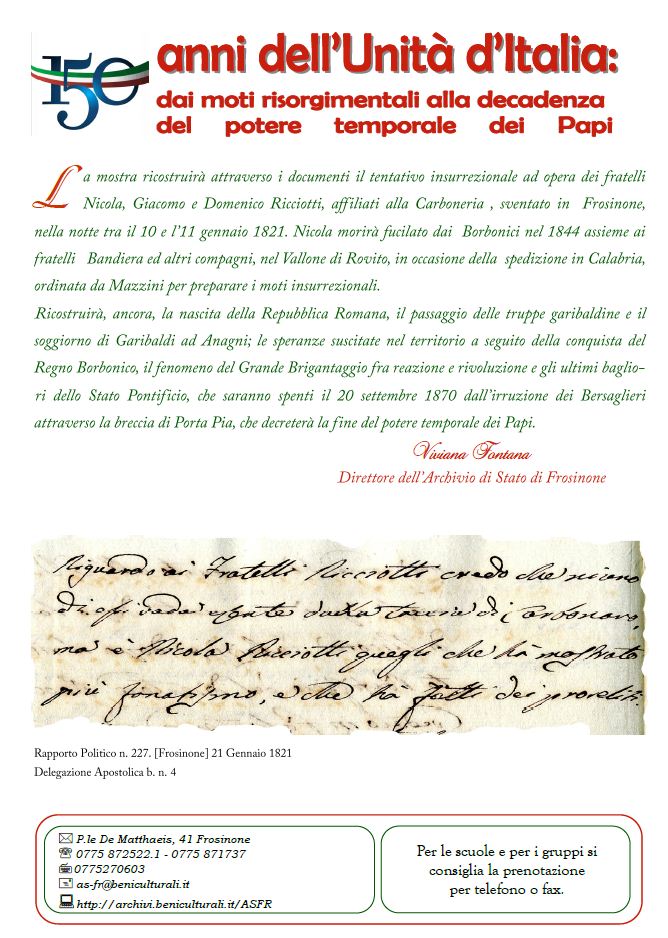 150 anni dell'Unità d'Italia:
dai moti risorgimentali alla decadenza
del potere temporale dei Papi
La mostra ricostruirà attraverso i documenti il tentativo insurrezionale ad opera dei fratelli
Nicola, Giacomo e Domenico Ricciotti, affiliati alla Carboneria , sventato in Frosinone,
nella notte tra il 10 e l'11 gennaio 1821. Nicola morirà fucilato dai Borbonici nel 1844 assieme ai
fratelli Bandiera ed altri compagni, nel Vallone di Rovito, in occasione della spedizione in Calabria,
ordinata da Mazzini per preparare i moti insurrezionali.
Ricostruirà, ancora, la nascita della Repubblica Romana, il passaggio delle truppe garibaldine e il
soggiorno di Garibaldi ad Anagni; le speranze suscitate nel territorio a seguito della conquista del
Regno Borbonico, il fenomeno del Grande Brigantaggio fra reazione e rivoluzione e gli ultimi baglio-
ri dello Stato Pontificio, che saranno spenti il 20 settembre 1870 dall'irruzione dei Bersaglieri
attraverso la breccia di Porta Pia, che decreterà la fine del potere temporale dei Papi.
Viviana Fontana
Direttore dell'Archivio di Stato di Frosinone
Riguardo ai Fratelli Ricciotti credo che niuno
di essi vada esente dalla taccia di Carbonaro,
ma è Nicola Ricciotti quegli che ha mostrato
più fanatismo, e che ha fatti dei proseliti.
Rapporto Politico n. 227. [Frosinone] 21 Gennaio 1821
Delegazione Apostolica b. n. 4
P.le De Matthaeis, 41 Frosinone
0775 872522.1 - 0775 871737
0775270603
as-fr@beniculturali.it
http://archivi.beniculturali.it/ASFR
Per le scuole e per i gruppi si
consiglia la prenotazione
per telefono o fax.